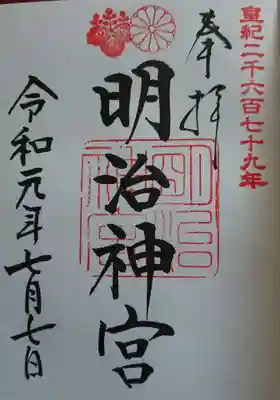 皇紀二千六百七十九年
奉拝
明治神宮
令和元年七月七日